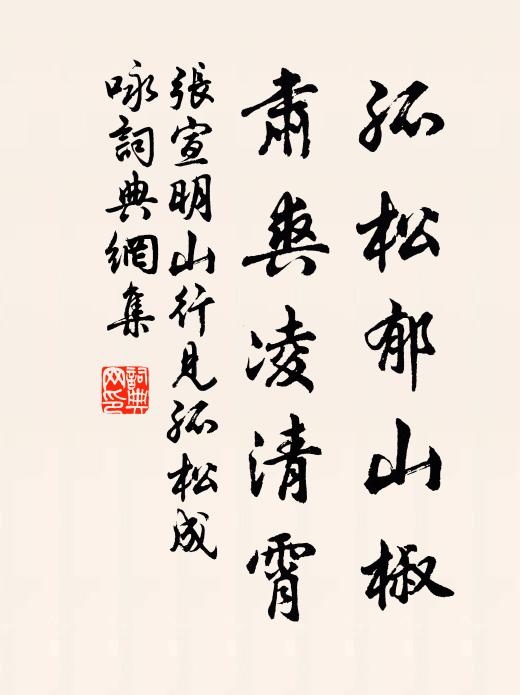 孤松郁山椒
肅爽凌清霄
張宣明山行見孤松成
咏詞典網集
詞典網印